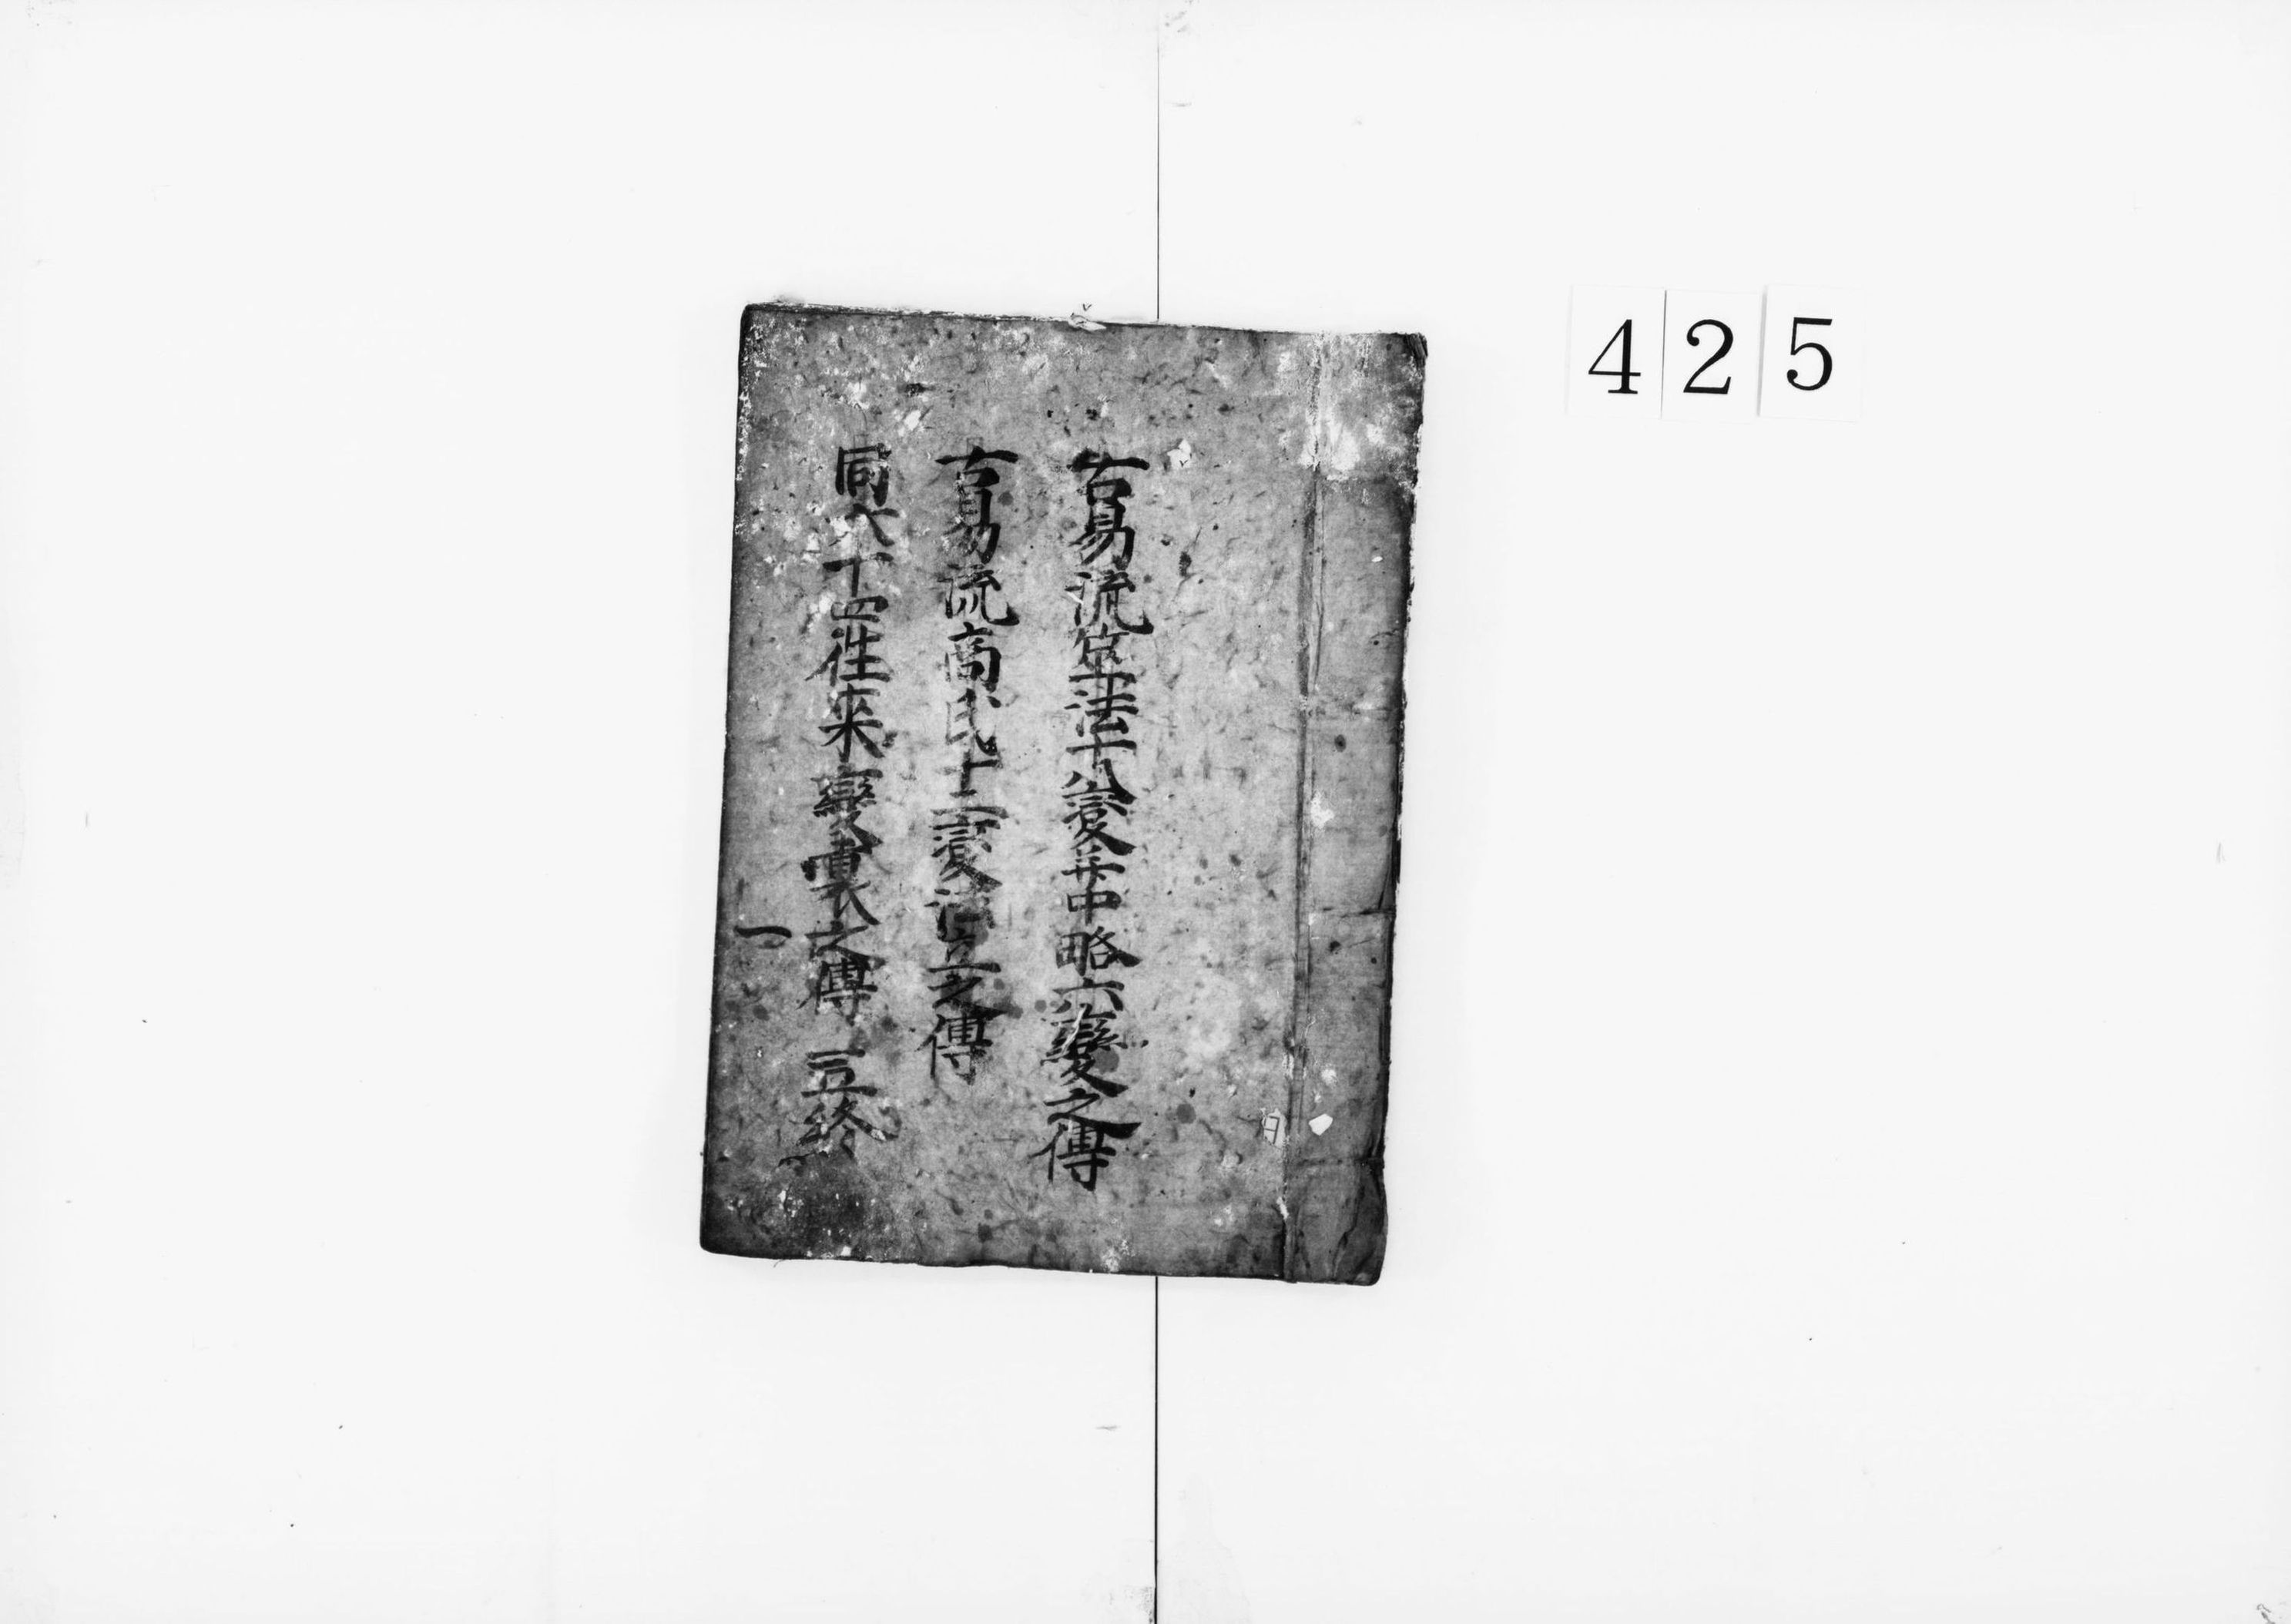 425
古易流筮法十八変并中略六變之傳
古易流高氏十二変法立之傳
同六十四往来變裏之傳 三終
一